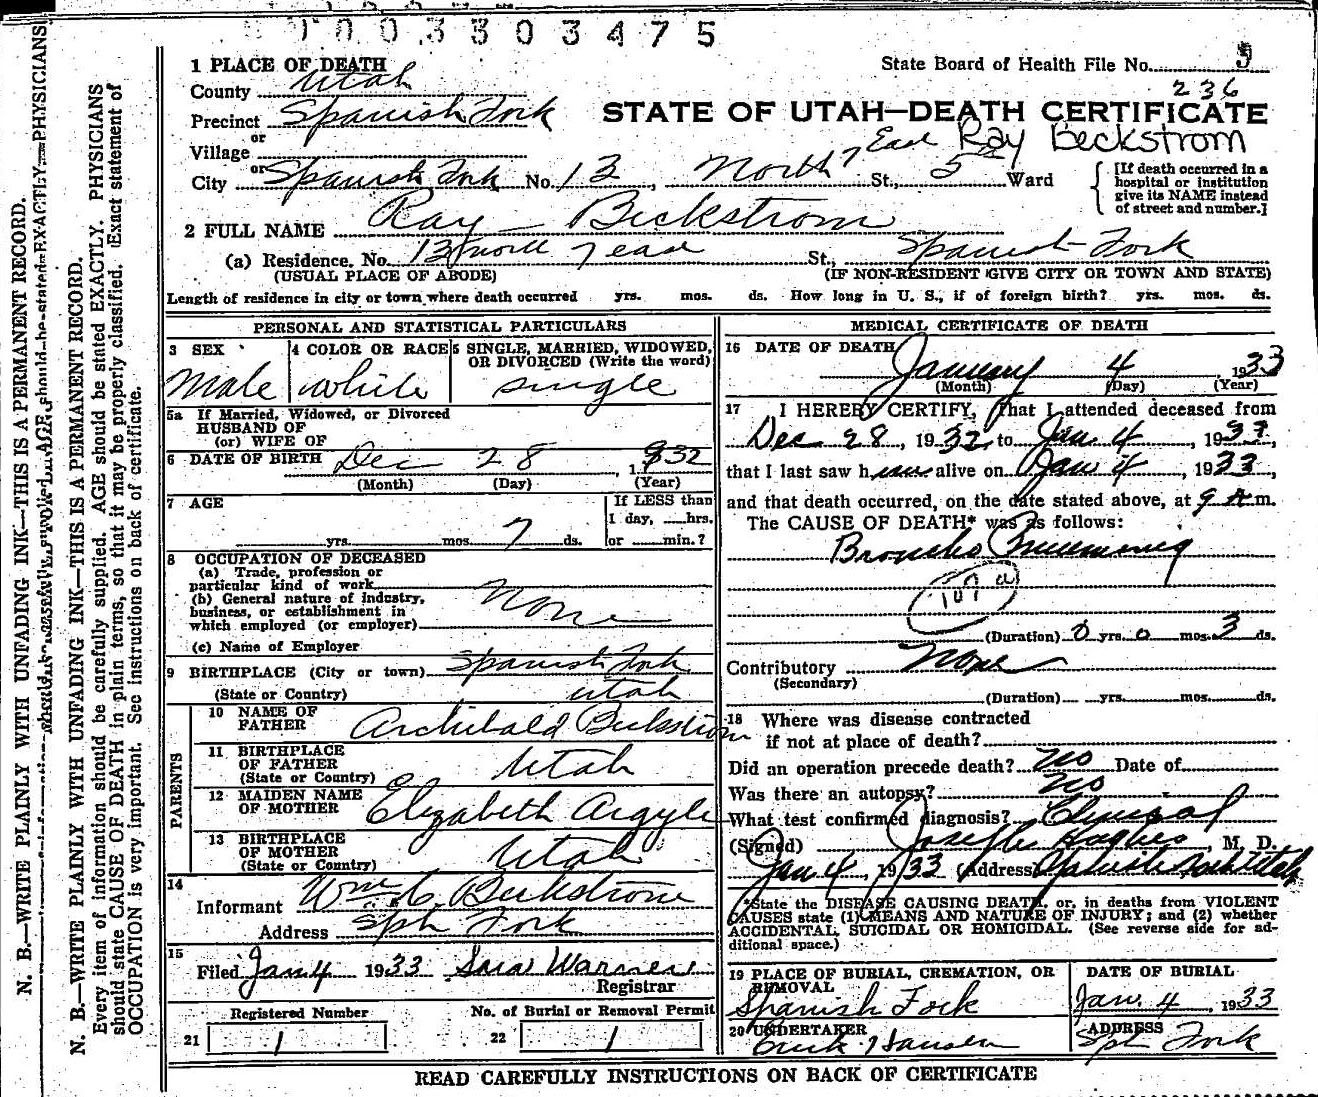 1003303475
1 PLACE OF DEATH
State Board of Health File No. 5
County Utah
236
Precinct Spanish Fork
STATE OF UTAH—DEATH CERTIFICATE
or
Village
East Ray Beckstrom
or City Spanish Fork No. 13, North 7 St., 5th Ward
[If death occurred in a hospital or institution give its NAME instead of street and number.]
2 FULL NAME Ray Beckstrom
(a) Residence, No. 13 north 7 east St., Spanish Fork
(USUAL PLACE OF ABODE) (IF NON-RESIDENT GIVE CITY OR TOWN AND STATE)
Length of residence in city or town where death occurred yrs. mos. ds. How long in U. S., if of foreign birth? yrs. mos. ds.
PERSONAL AND STATISTICAL PARTICULARS
3 SEX
Male
4 COLOR OR RACE
white
5 SINGLE, MARRIED, WIDOWED, OR DIVORCED (Write the word)
single
5a If Married, Widowed, or Divorced
HUSBAND OF
(or) WIFE OF
6 DATE OF BIRTH Dec 28, 1932
(Month) (Day) (Year)
7 AGE
yrs. mos. 7 ds.
If LESS than
1 day, hrs.
or min.?
8 OCCUPATION OF DECEASED
(a) Trade, profession or
particular kind of work
(b) General nature of Industry,
business, or establishment in
which employed (or employer) None
(c) Name of Employer
9 BIRTHPLACE (City or town) Spanish Fork
(State or Country) Utah
PARENTS
10 NAME OF FATHER Archibald Beckstrom
11 BIRTHPLACE OF FATHER (State or Country) Utah
12 MAIDEN NAME OF MOTHER Elizabeth Argyle
13 BIRTHPLACE OF MOTHER (State or Country) Utah
14
Informant Wm. C. Beckstrom
Address Sph Fork
15
Filed Jan 4 1933 Warner
Registrar
Registered Number
21 1
No. of Burial or Removal Permit
22 1
MEDICAL CERTIFICATE OF DEATH
16 DATE OF DEATH January 4, 1933
(Month) (Day) (Year)
17 I HEREBY CERTIFY, That I attended deceased from
Dec 28, 1932, to Jan 4, 1933,
that I last saw him alive on Jan 4, 1933,
and that death occurred, on the date stated above, at 9 A m.
The CAUSE OF DEATH* was as follows:
Broncho Pneumonia
107 a
(Duration) 0 yrs. 0 mos. 3 ds.
Contributory None
(Secondary)
(Duration) yrs. mos. ds.
18 Where was disease contracted
if not at place of death?
Did an operation precede death? No Date of
Was there an autopsy? No
What test confirmed diagnosis? Clinical
(Signed) Joseph Hughes, M. D.
Jan 4, 1933 (Address) Spanish Fork Utah
*State the DISEASE CAUSING DEATH, or, in deaths from VIOLENT
CAUSES state (1) MEANS AND NATURE OF INJURY; and (2) whether
ACCIDENTAL, SUICIDAL OR HOMICIDAL. (See reverse side for ad-
ditional space.)
19 PLACE OF BURIAL, CREMATION, OR REMOVAL
Spanish Fork
DATE OF BURIAL
Jan. 4, 1933
20 UNDERTAKER
Hansen
ADDRESS
Sph Fork
READ CAREFULLY INSTRUCTIONS ON BACK OF CERTIFICATE
N. B.—WRITE PLAINLY WITH UNFADING INK—THIS IS A PERMANENT RECORD.
N. B.—WRITE PLAINLY WITH UNFADING INK—THIS IS A PERMANENT RECORD.
Every item of information should be carefully supplied. AGE should be stated EXACTLY. PHYSICIANS
should state CAUSE OF DEATH in plain terms, so that it may be properly classified. Exact statement of
OCCUPATION is very important. See instructions on back of certificate.